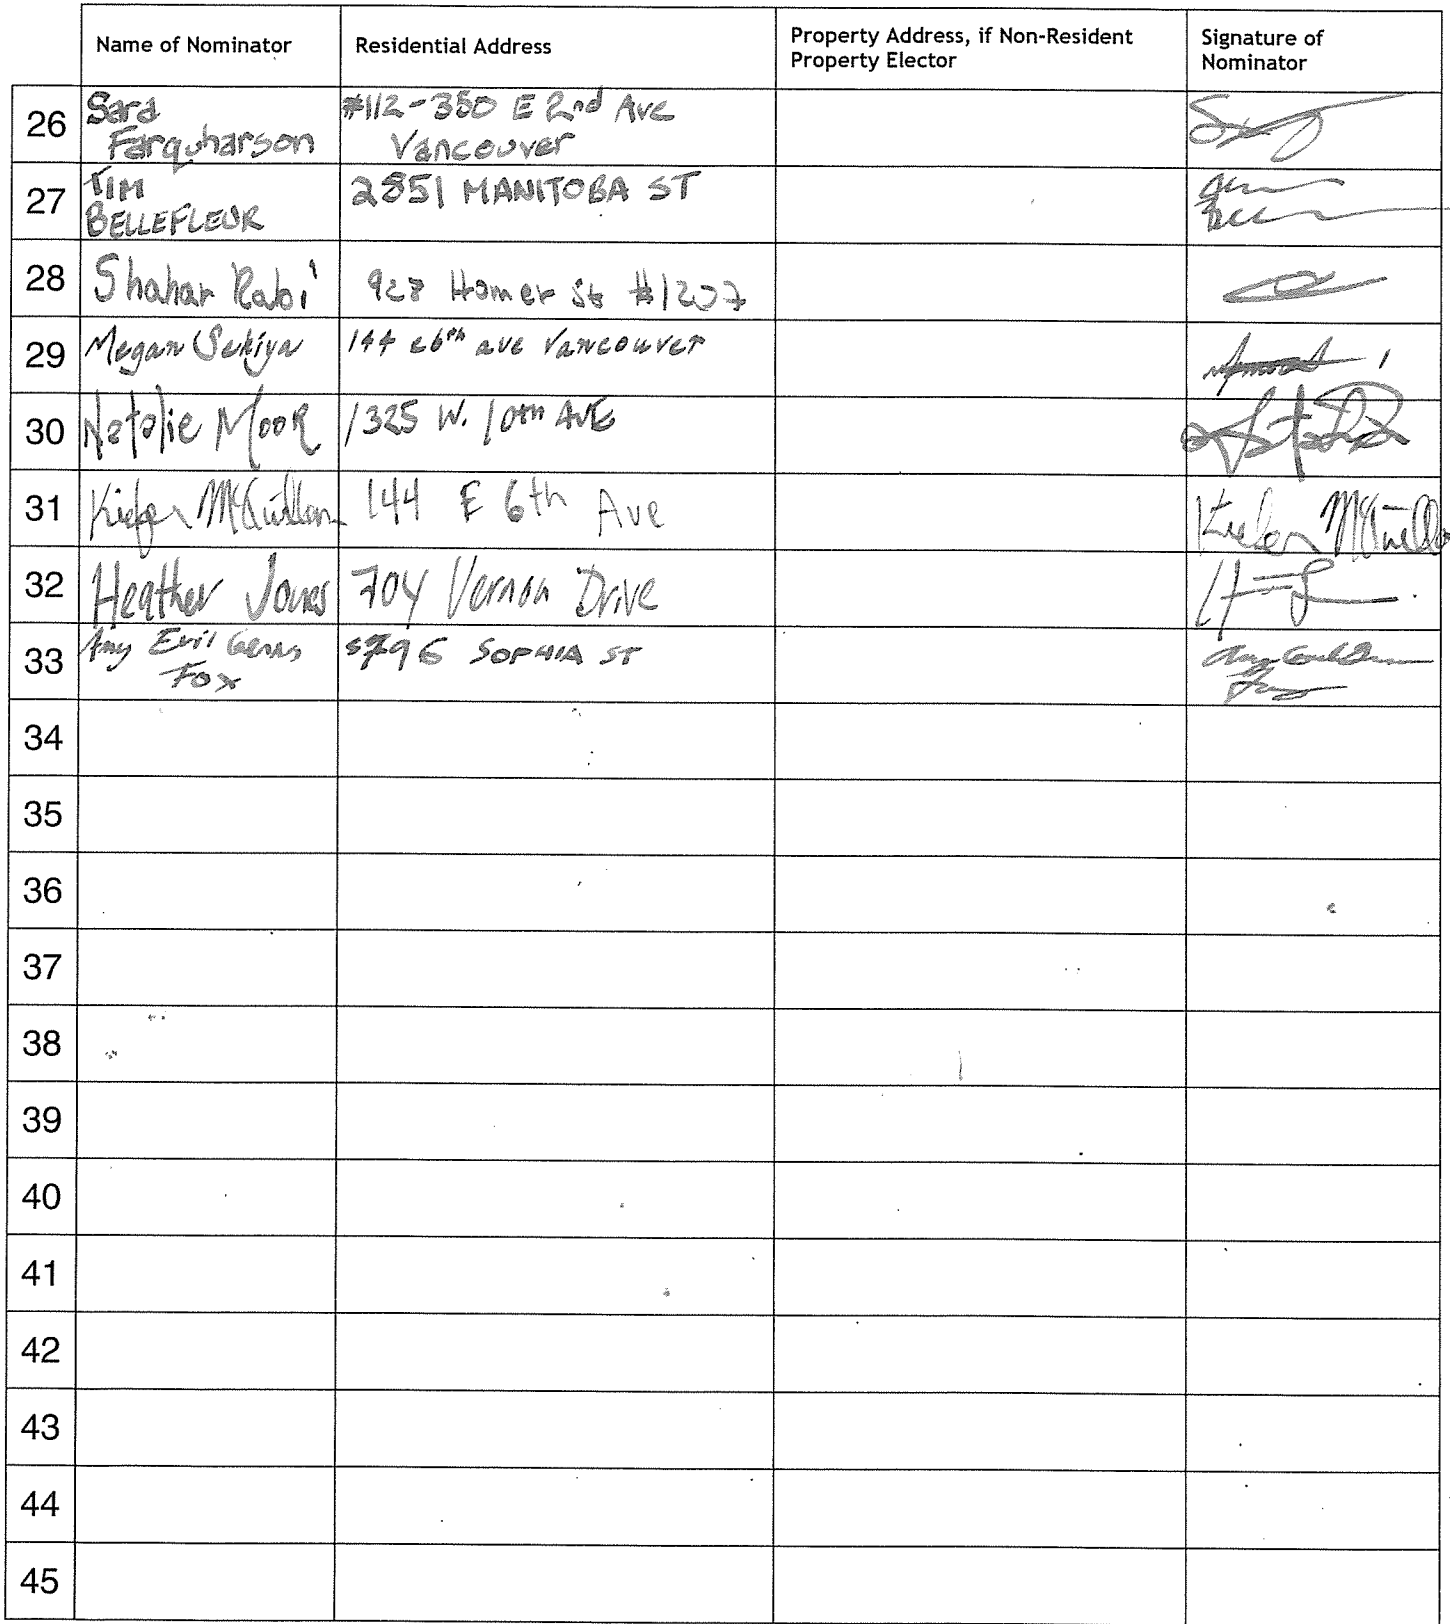 Name of Nominator
Residential Address
Property Address, if Non-Resident
Property Elector
Signature of
Nominator
26
Sara
Farquharson
#112-350 E 2nd Ave
Vancouver
27
TIM
BELLEFLEUR
2851 MANITOBA ST
28
Shahar Rabi
928 Homer St #1207
29
Megan Sekiya
144 e6th ave Vancouver
30
Natalie Moor
1325 W. 10th AVE
31
Kiefer McQuillan
144 E 6th Ave
Kiefer
32
Heather Jones
704 Vernon Drive
33
Amy Evil Genius
Fox
SOPHIA ST
34
35
36
37
38
39
40
41
42
43
44
45